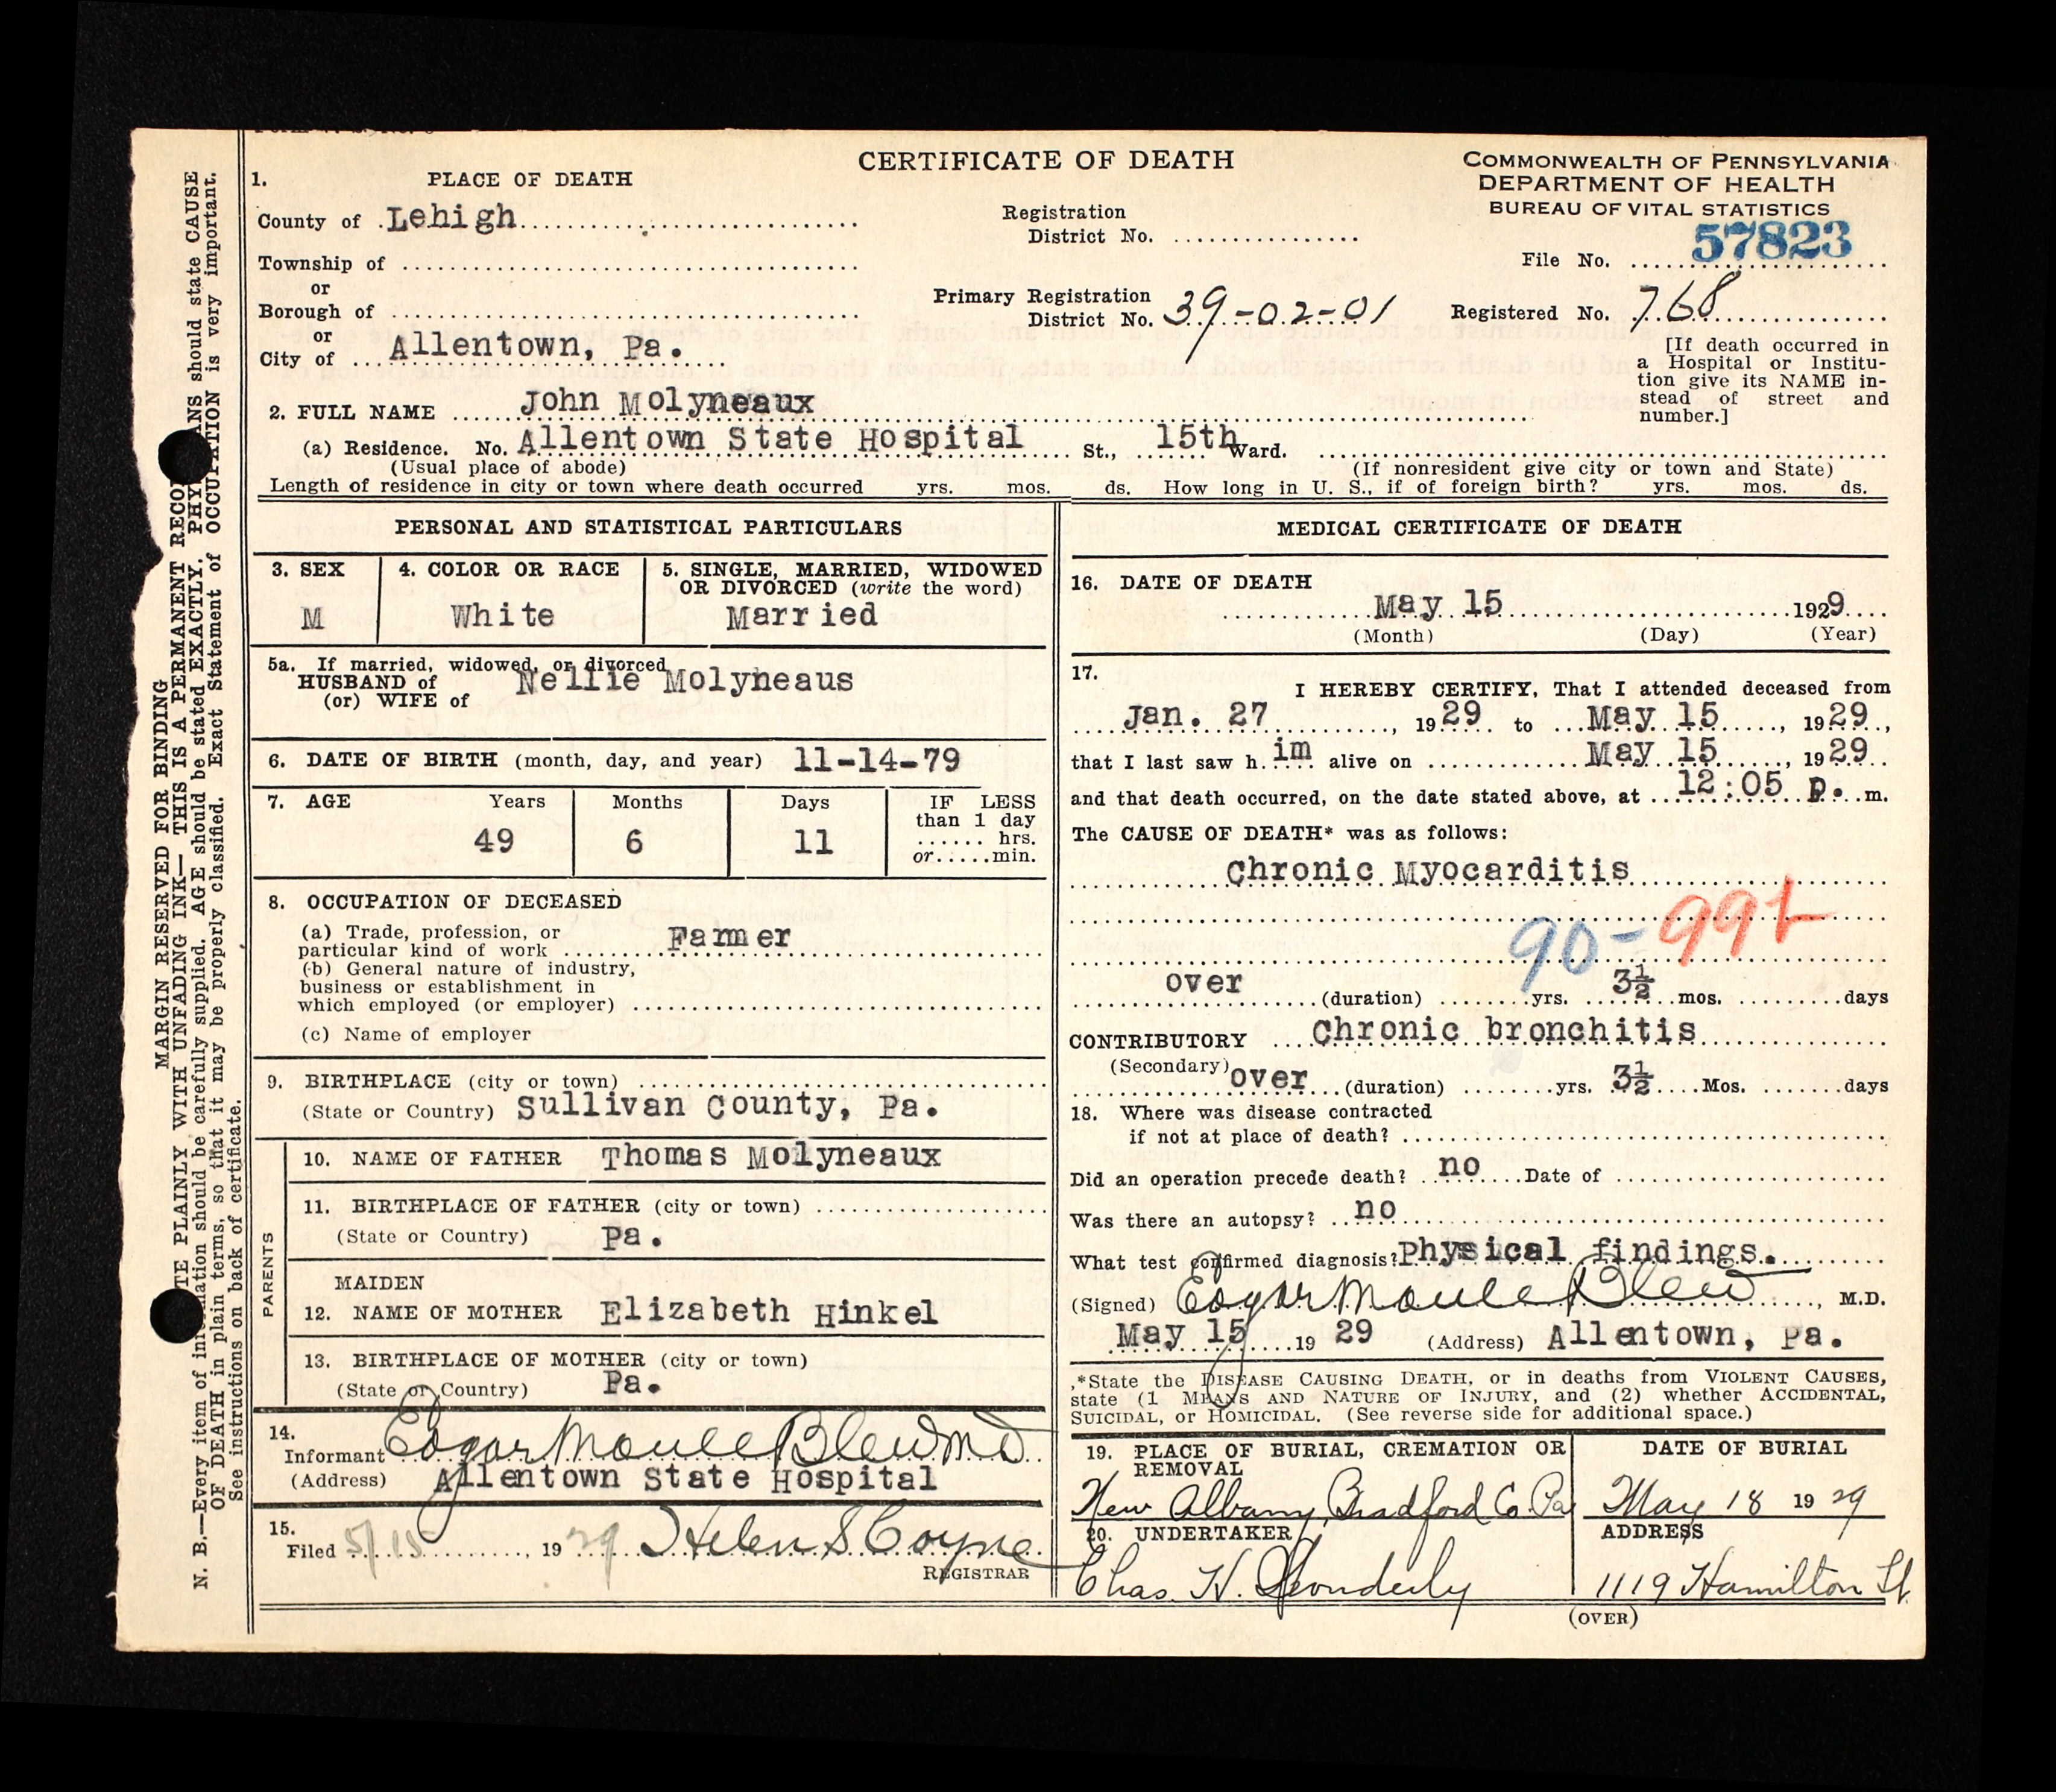 CERTIFICATE OF DEATH
COMMONWEALTH OF PENNSYLVANIA
DEPARTMENT OF HEALTH
BUREAU OF VITAL STATISTICS
1. PLACE OF DEATH
County of Lehigh
Registration
District No.
57823
File No.
Township of
or
Borough of
or
City of Allentown, Pa.
Primary Registration
District No. 39-02-01
Registered No. 768
[If death occurred in
a Hospital or Institu-
tion give its NAME in-
stead of street and
number.]
2. FULL NAME John Molyneaux
(a) Residence. No. Allentown State Hospital St., 15th Ward.
(Usual place of abode) (If nonresident give city or town and State)
Length of residence in city or town where death occurred yrs. mos. ds. How long in U. S., if of foreign birth? yrs. mos. ds.
PERSONAL AND STATISTICAL PARTICULARS
3. SEX
M
4. COLOR OR RACE
White
5. SINGLE, MARRIED, WIDOWED
OR DIVORCED (write the word)
Married
5a. If married, widowed, or divorced
HUSBAND of
(or) WIFE of
Nellie Molyneaus
6. DATE OF BIRTH (month, day, and year) 11-14-79
7. AGE Years Months Days IF LESS
than 1 day
hrs.
or.....min.
49 6 11
8. OCCUPATION OF DECEASED
(a) Trade, profession, or
particular kind of work Farmer
(b) General nature of industry,
business or establishment in
which employed (or employer)
(c) Name of employer
9. BIRTHPLACE (city or town)
(State or Country) Sullivan County, Pa.
PARENTS
10. NAME OF FATHER Thomas Molyneaux
11. BIRTHPLACE OF FATHER (city or town)
(State or Country) Pa.
MAIDEN
12. NAME OF MOTHER Elizabeth Hinkel
13. BIRTHPLACE OF MOTHER (city or town)
(State or Country) Pa.
14.
Informant Edgar Moule Blew MD
(Address) Allentown State Hospital
15.
Filed 5/15, 1929 Helen S Coyne
REGISTRAR
MEDICAL CERTIFICATE OF DEATH
16. DATE OF DEATH
May 15 1929
(Month) (Day) (Year)
17.
I HEREBY CERTIFY, That I attended deceased from
Jan. 27, 1929 to May 15, 1929,
that I last saw h.im alive on May 15, 1929
and that death occurred, on the date stated above, at 12:05 p. m.
The CAUSE OF DEATH* was as follows:
Chronic Myocarditis
90-99
over (duration) yrs. 3½ mos. days
CONTRIBUTORY Chronic bronchitis
(Secondary) over (duration) yrs. 3½ Mos. days
18. Where was disease contracted
if not at place of death?
Did an operation precede death? no Date of
Was there an autopsy? no
What test confirmed diagnosis? Physical findings.
(Signed) Edgar Moule Blew, M.D.
May 15 19 29 (Address) Allentown, Pa.
*State the DISEASE CAUSING DEATH, or in deaths from VIOLENT CAUSES,
state (1 MEANS AND NATURE OF INJURY, and (2) whether ACCIDENTAL,
SUICIDAL, or HOMICIDAL. (See reverse side for additional space.)
19. PLACE OF BURIAL, CREMATION OR
REMOVAL
New Albany, Bradford Co. Pa
DATE OF BURIAL
May 18 1929
20. UNDERTAKER
Chas. H.
ADDRESS
1119 Hamilton St.
(OVER)
MARGIN RESERVED FOR BINDING
TE PLAINLY WITH UNFADING INK— THIS IS A PERMANENT RECO
N. B.—Every item of information should be carefully supplied. AGE should be stated EXACTLY. PHYSICIANS should state CAUSE
OF DEATH in plain terms, so that it may be properly classified. Exact Statement of OCCUPATION is very important.
See instructions on back of certificate.